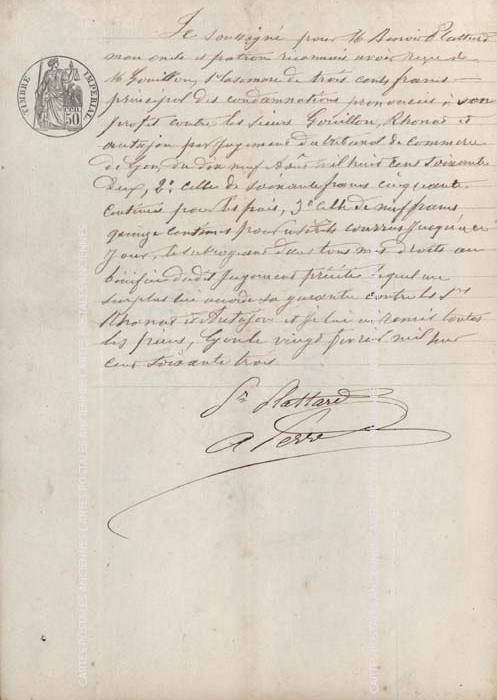 TIMBRE IMPÉRIAL
50
Je soussigné pour M Benoit Plattard
mon oncle et patron reconnais avoir reçu de
M. Gouillon, 1° la somme de trois cents francs
principal des condamnations prononcées à son
profit contre les sieurs Gouillon, Rhonas et
par jugement du tribunal de Commerce
de Lyon, du dix neuf Août mil huit cent soixante
deux, 2° celle de soixante francs cinquante
centimes pour les frais, 3° celle de neuf francs
quinze centimes pour intérêts courus jusqu'à ce
jour, le subrogeant dans tous mes droits au
bénéfice dudit jugement précité lequel au
surplus lui accorde sa garantie contre les Srs
Rhonas et et je lui ai remis toutes
les pièces, Lyon le vingt février mil huit
cent soixante trois
Pr Plattard
A Perre
CARTES POSTALES ANCIENNES